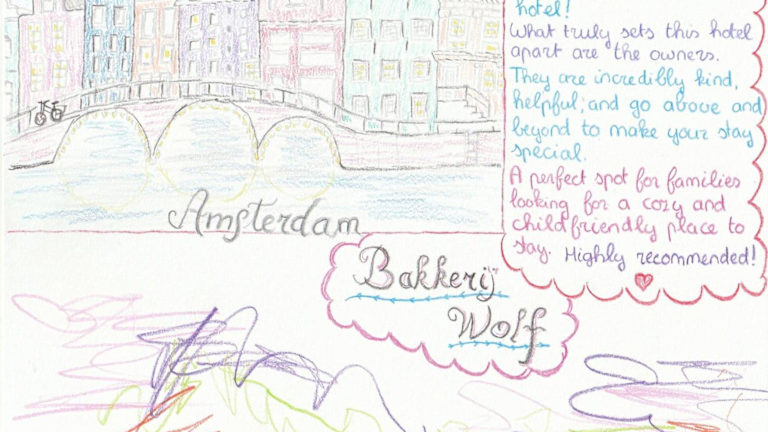 hotel!
What truly sets this hotel
apart are the owners.
They are incredibly kind,
helpful, and go above and
beyond to make your stay
special.
A perfect spot for families
looking for a cozy and
childfriendly place to
stay. Highly recommended!
Amsterdam
Bakkerij
Wolf